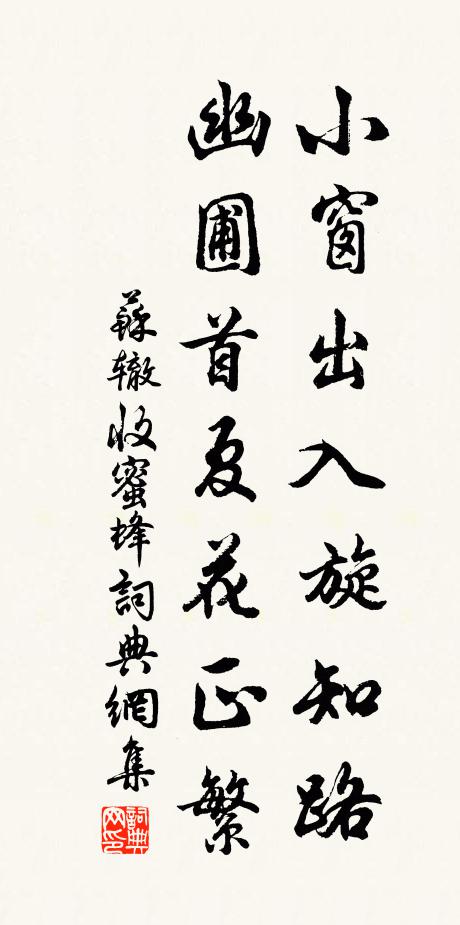 小窗出入旋知路
幽圃首夏花正繁
蘇辙收蜜蜂詞典網集
詞典网印